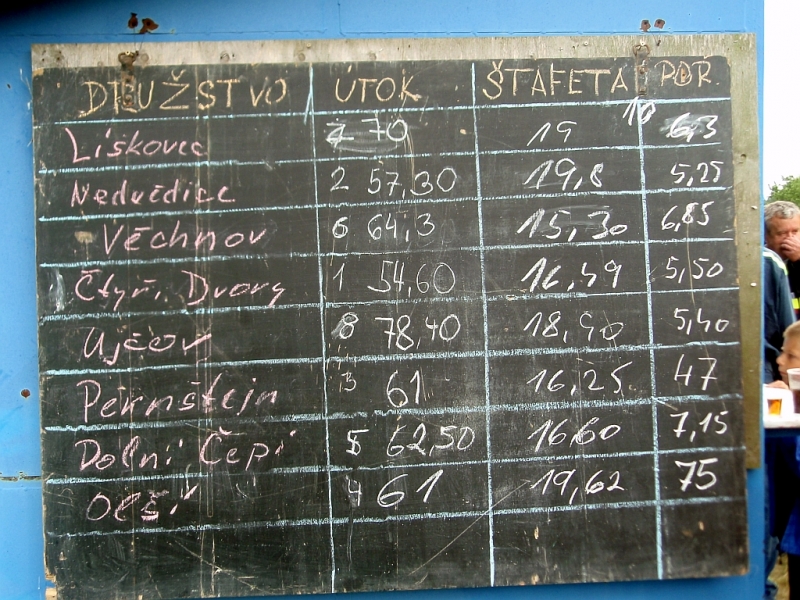 DRUŽSTVO ÚTOK ŠTAFETA POŘ
Liškovec 7 70 19 10 6,3
Nedvědice 2 57,30 19,8 5,25
Věchnov 6 64,3 15,30 6,85
Čtyř. Dvory 1 54,60 16,49 5,50
Ujčov 8 78,40 18,90 5,40
Pernštejn 3 61 16,25 47
Dolní Čepí 5 62,50 16,60 7,15
Olší 4 61 19,62 75